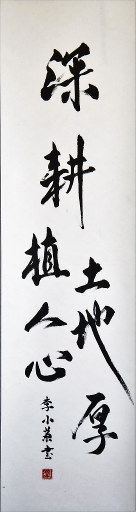 深耕
土地厚
植人心
李小岩书